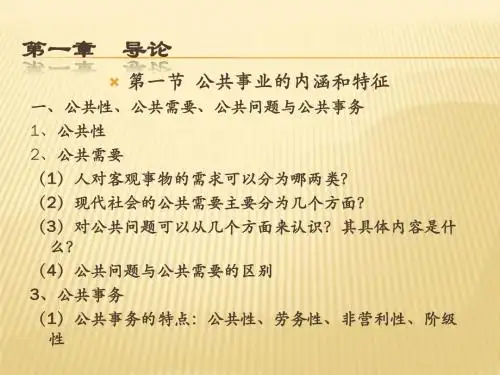 第一章 导论
第一节 公共事业的内涵和特征
一、公共性、公共需要、公共问题与公共事务
1、公共性
2、公共需要
（1）人对客观事物的需求可以分为哪两类？
（2）现代社会的公共需要主要分为几个方面？
（3）对公共问题可以从几个方面来认识？其具体内容是什
么？
（4）公共问题与公共需要的区别
3、公共事务
（1）公共事务的特点：公共性、劳务性、非营利性、阶级
性